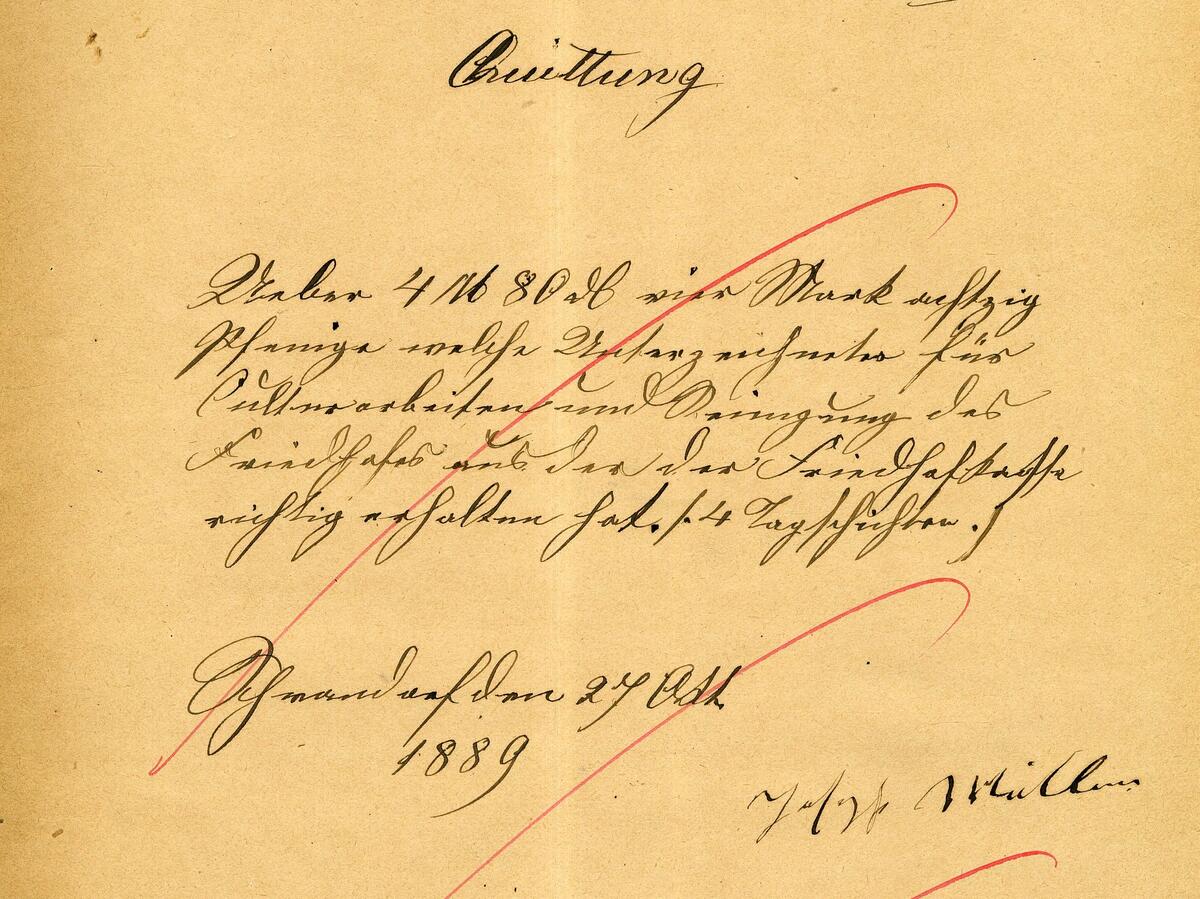 Quittung
Ueber 4 M 80 ₰ vier Mark achtzig
Pfenige welche Unterzeichneter für
Culturarbeiten und Reinigung des
Friedhofes aus der der Friedhofkasse
richtig erhalten hat. /. 4 Tagschichten ./
Schwandorf den 27 Okt.
1889
Joseph Müller